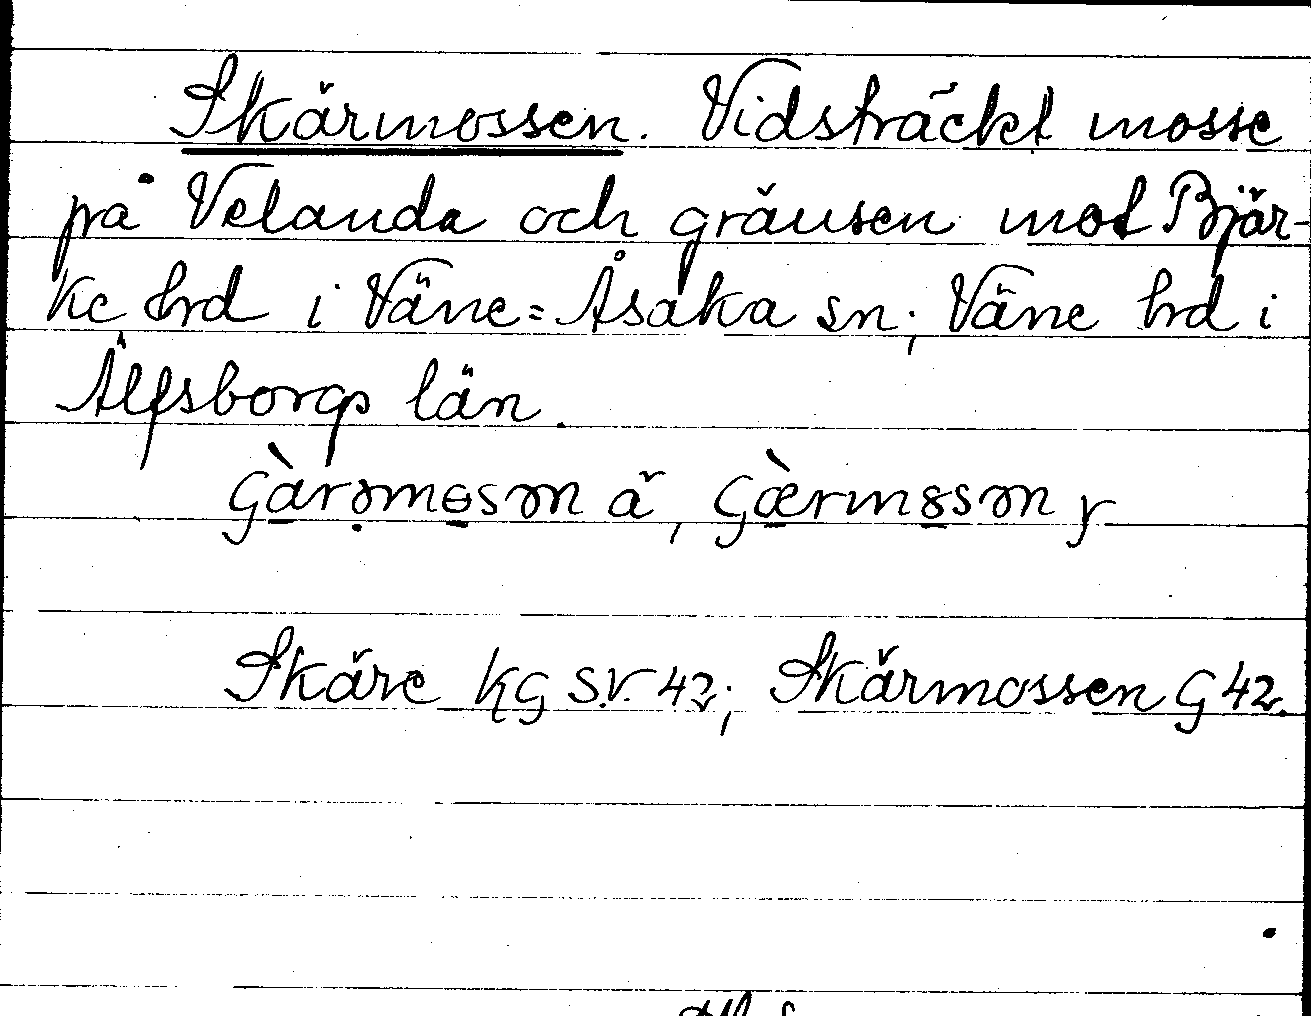 Skärmossen. Vidsträckt mosse
på Velanda och gränsen mot Bjär-
ke hrd i Väne=Åsaka sn; Väne hrd i
Älfsborgs län.
ɕàrəmɵsən ä, ɕæ̀rm8sən y
Skäre KG S.V. 42; Skärmossen G 42.